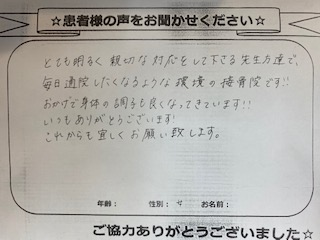 ☆患者様の声をお聞かせください☆
とても明るく親切な対応をして下さる先生方達で、
毎日通院したくなるような環境の接骨院です!!
おかげで身体の調子も良くなってきています!!
いつもありがとうございます!
これからも宜しくお願い致します。
年齢： 性別：女 お名前：
ご協力ありがとうございました☆